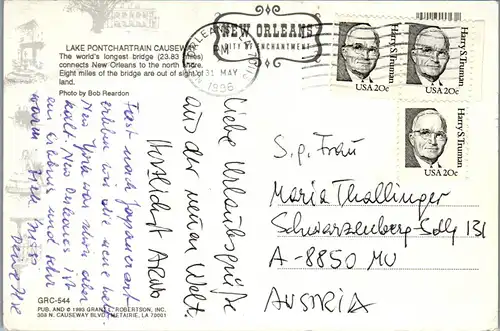 LAKE PONTCHARTRAIN CAUSEWAY
The world's longest bridge (23.83 miles)
connects New Orleans to the north shore.
Eight miles of the bridge are out of sight of
land.
Photo by Bob Reardon
NEW ORLEANS
CITY OF ENCHANTMENT
31 MAY
1996
Harry S. Truman
USA 20c
Harry S. Truman
USA 20c
Harry S. Truman
USA 20c
Liebe Urlaubsgrüße
aus der neuen Welt.
Herzlichst
Fast nach
erleben wir die neue Welt.
New York war schön aber
kalt. New Orleans ist
ein Erlebnis und sehr
warm.
S.g. Frau
Maria Thallinger
Schwarzenberg-Sdlg 131
A-8850 MU
AUSTRIA
GRC-544
PUB. AND © 1993 GRANT L. ROBERTSON, INC.
308 N. CAUSEWAY BLVD. METAIRIE, LA 70001